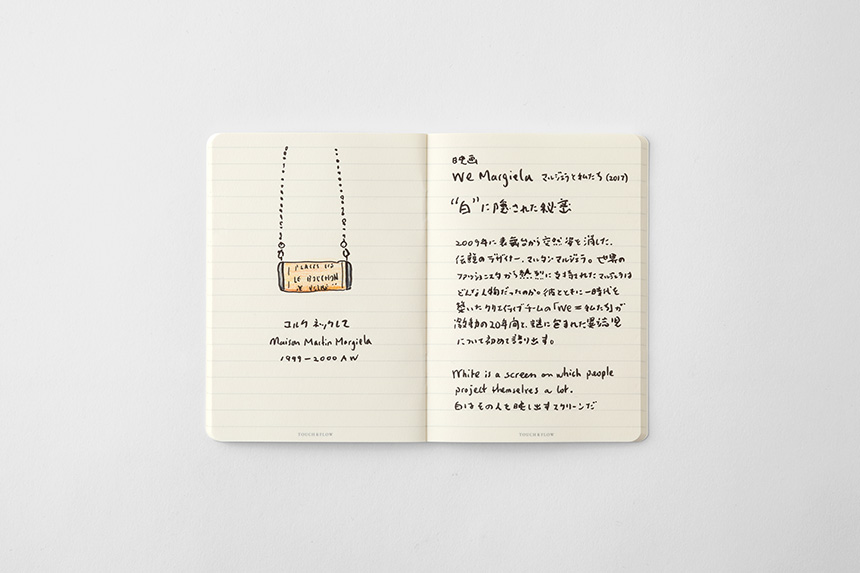 PLACES
LE BOUCHON
コルク ネックレス
Maison Martin Margiela
1999-2000 AW
TOUCH & FLOW
映画
We Margiela マルジェラと私たち (2017)
“白”に隠された秘密
2009年に表舞台から突然姿を消した、
伝説のデザイナー、マルタン・マルジェラ。世界の
ファッショニスタから熱烈に支持されたマルジェラは
どんな人物だったのか。彼とともに一時代を
築いたクリエイティブチームの「We=私たち」が
激動の20年間と、謎に包まれた異端児
について初めて語り出す。
White is a screen on which people
project themselves a lot.
白はその人を映し出すスクリーンだ
TOUCH & FLOW